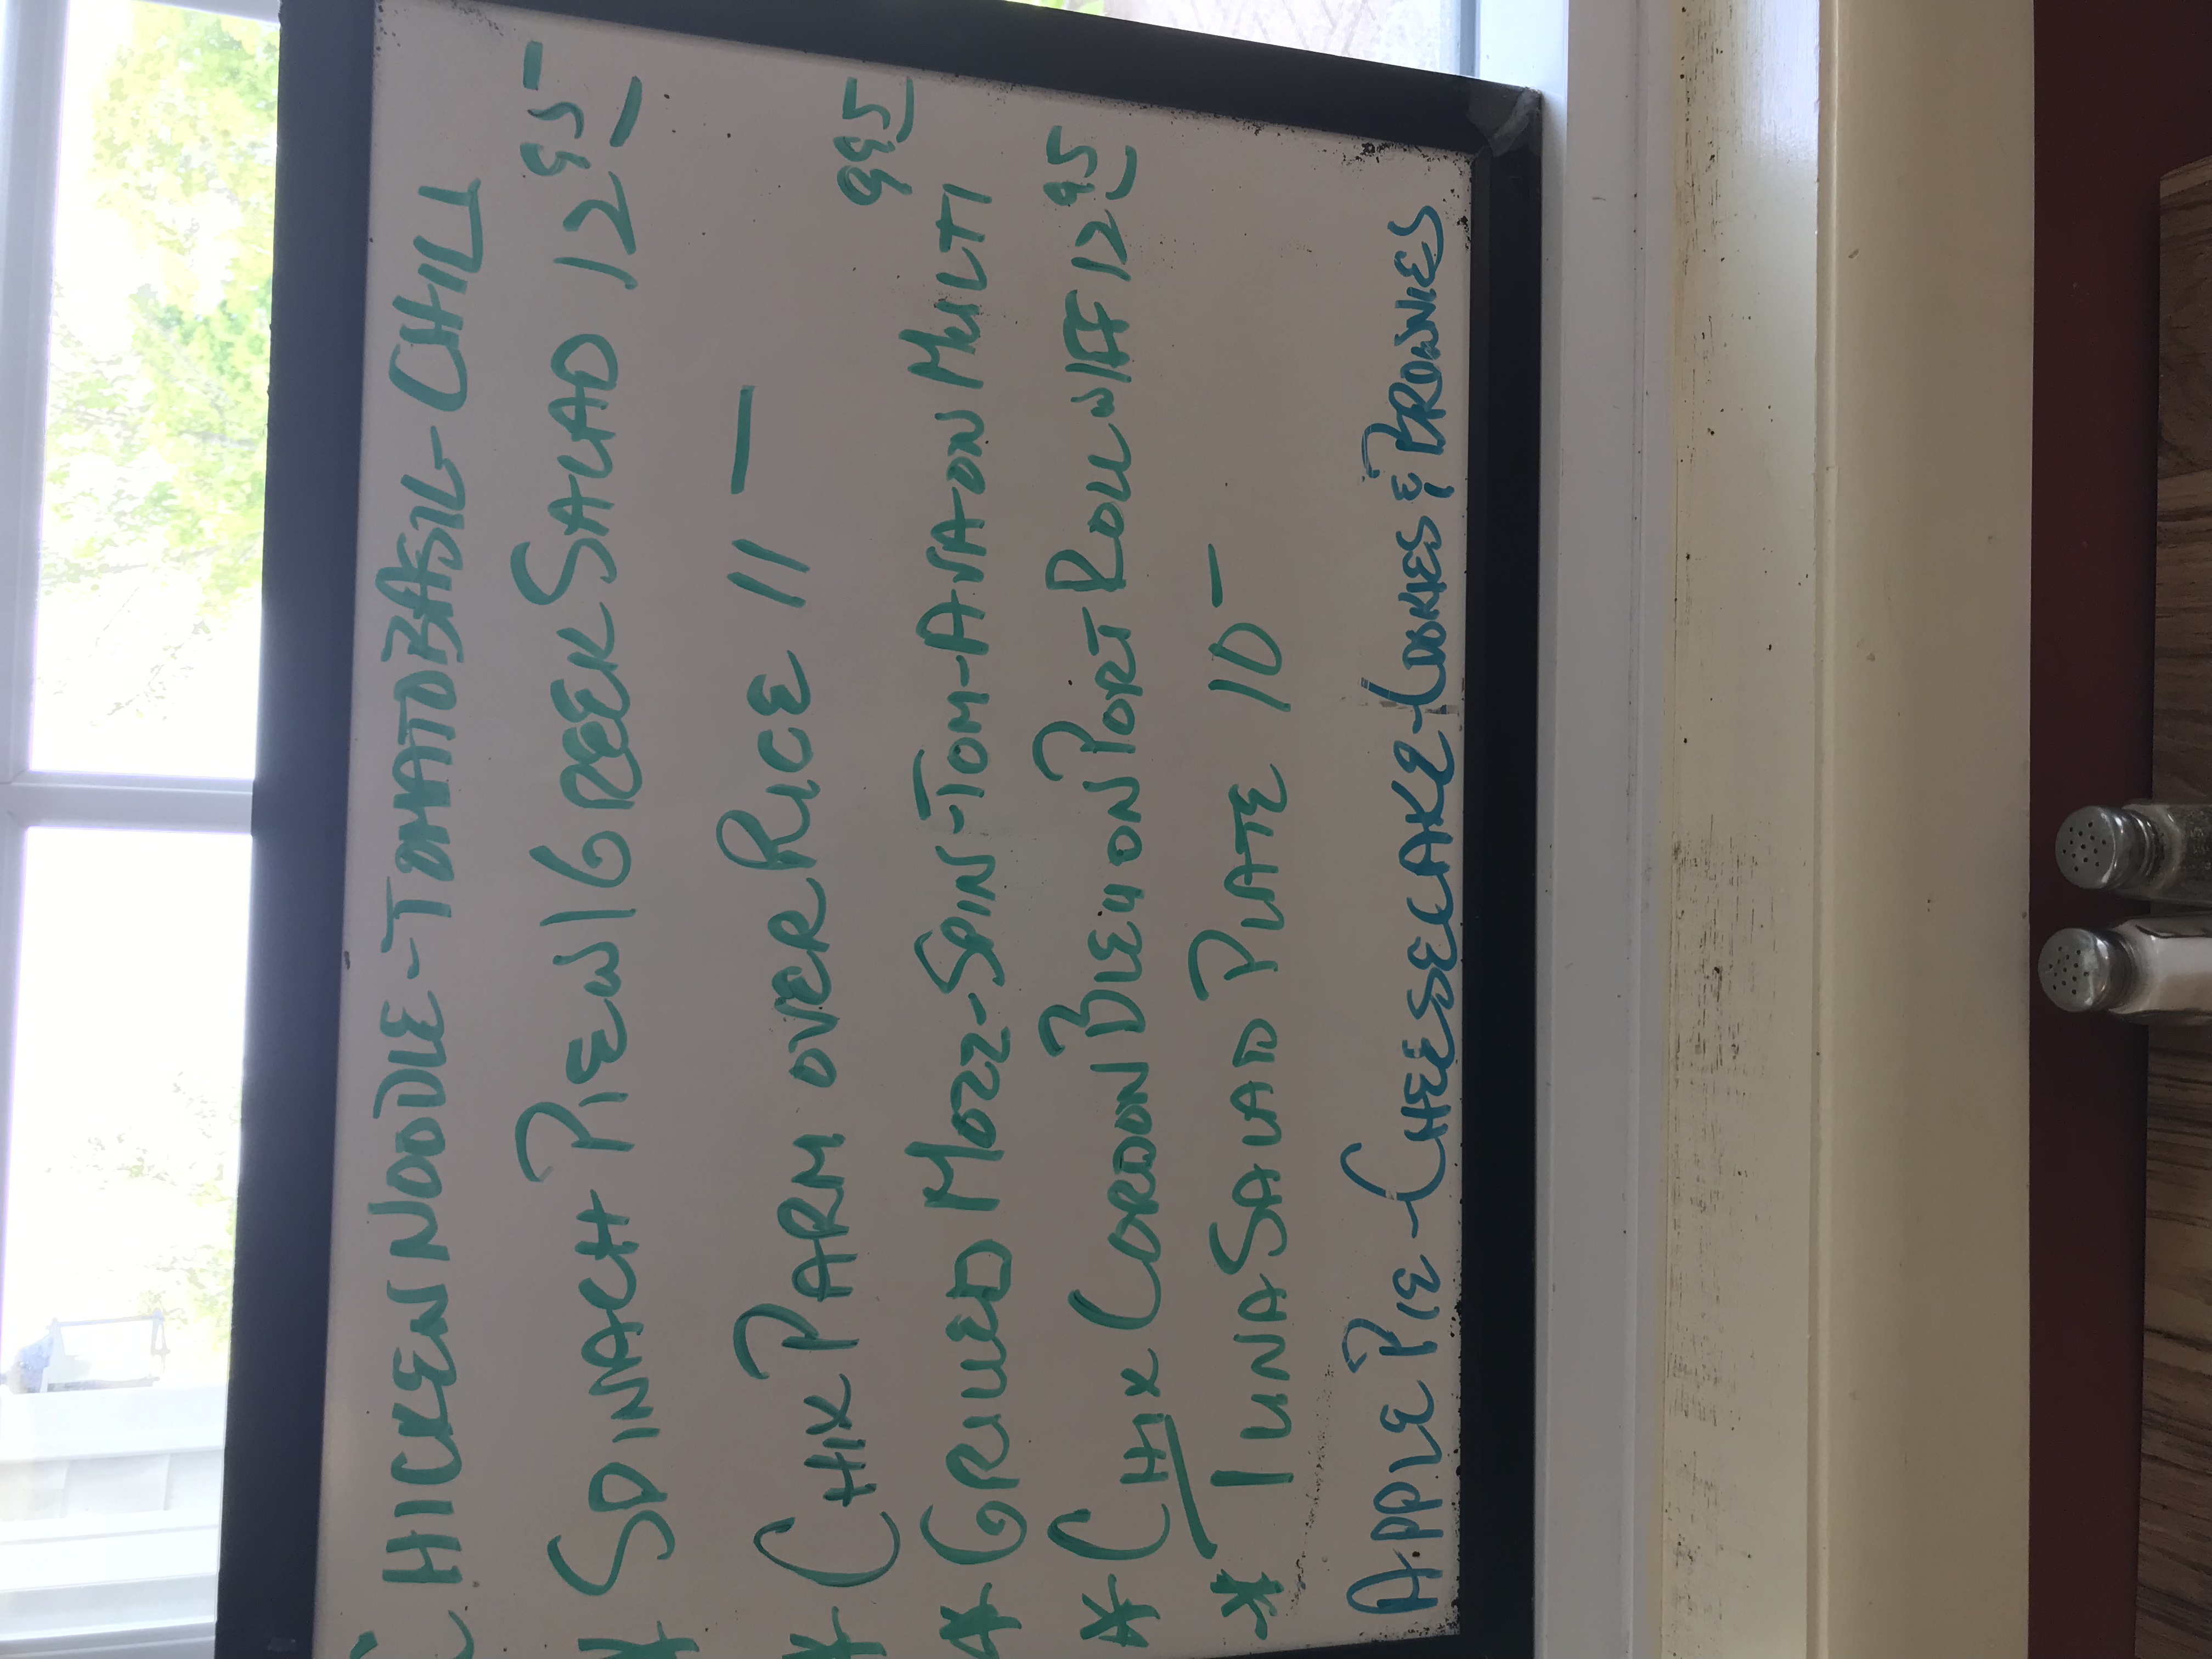 CHICKEN NOODLE - TOMATO BASIL - CHILI
* SPINACH PIE W/ GREEK SALAD 12 95 -
* CHIX PARM OVER RICE 11 -
* GRILLED MOZZ-SPIN-TOM-AVA ON MULTI 9 95
* CHIX CORDON BLEU ON PORT ROLL W/FF 12 95
* TUNA SALAD PLATE 10 -
APPLE PIE - CHEESECAKE - COOKIES & BROWNIES